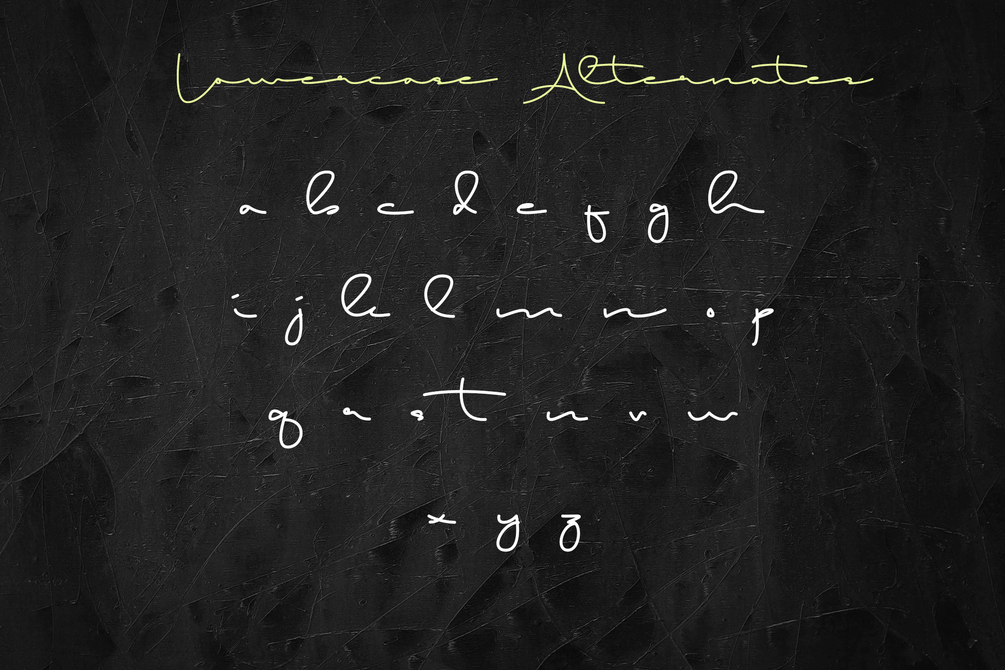 Lowercase Alternates
a b c d e f g h
i j k l m n o p
q r s t u v w
x y z